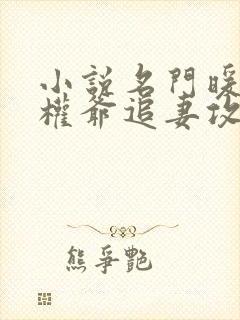 小說名門暖
權爺追妻攻
熊爭艷